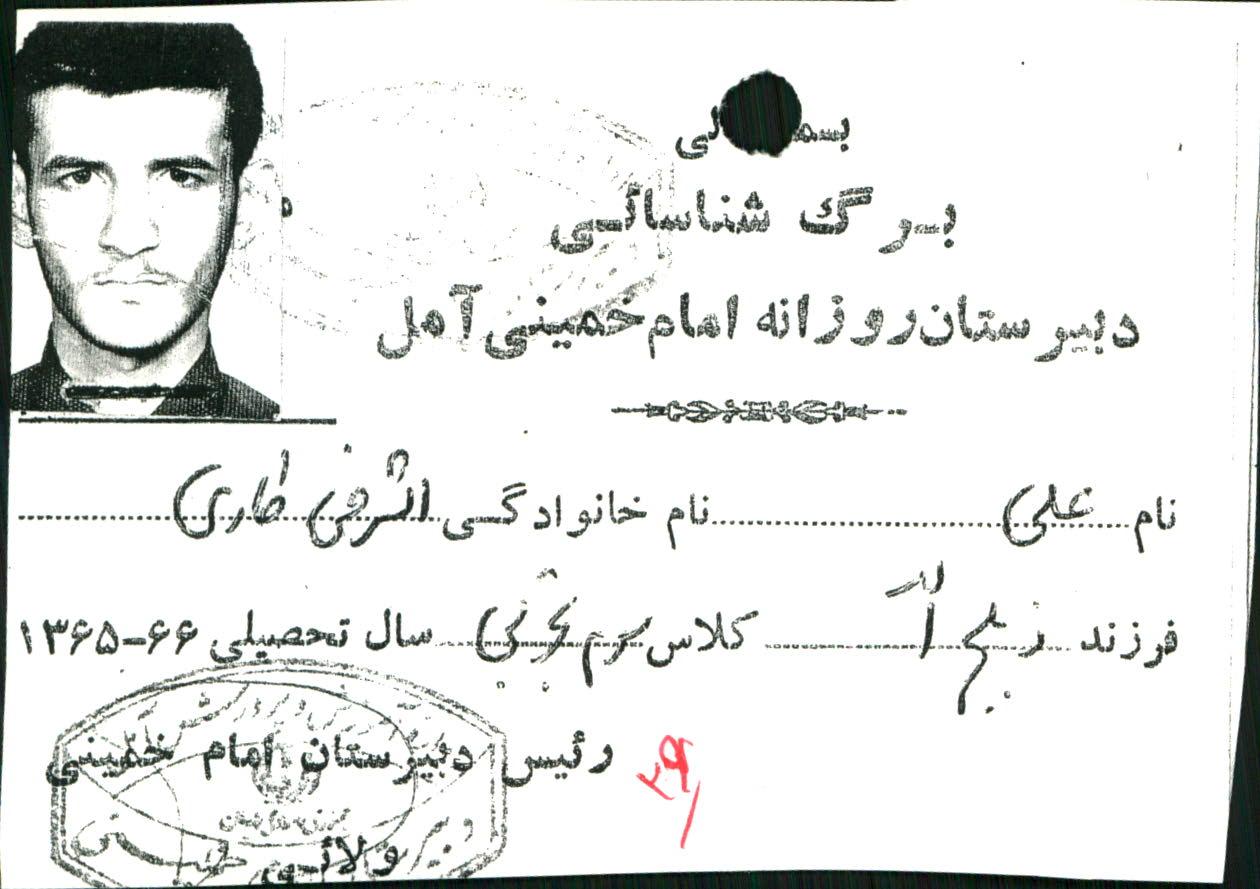 بسم‍ ‍لی
برگ شناسائی
دبیرستان روزانه امام خمینی آمل
نام علی نام خانوادگی اشرفی طاری
فرزند ذبیح اله کلاس سال تحصیلی ۶۶-۱۳۶۵
رئیس دبیرستان امام خمینی
ولائی
۲۹